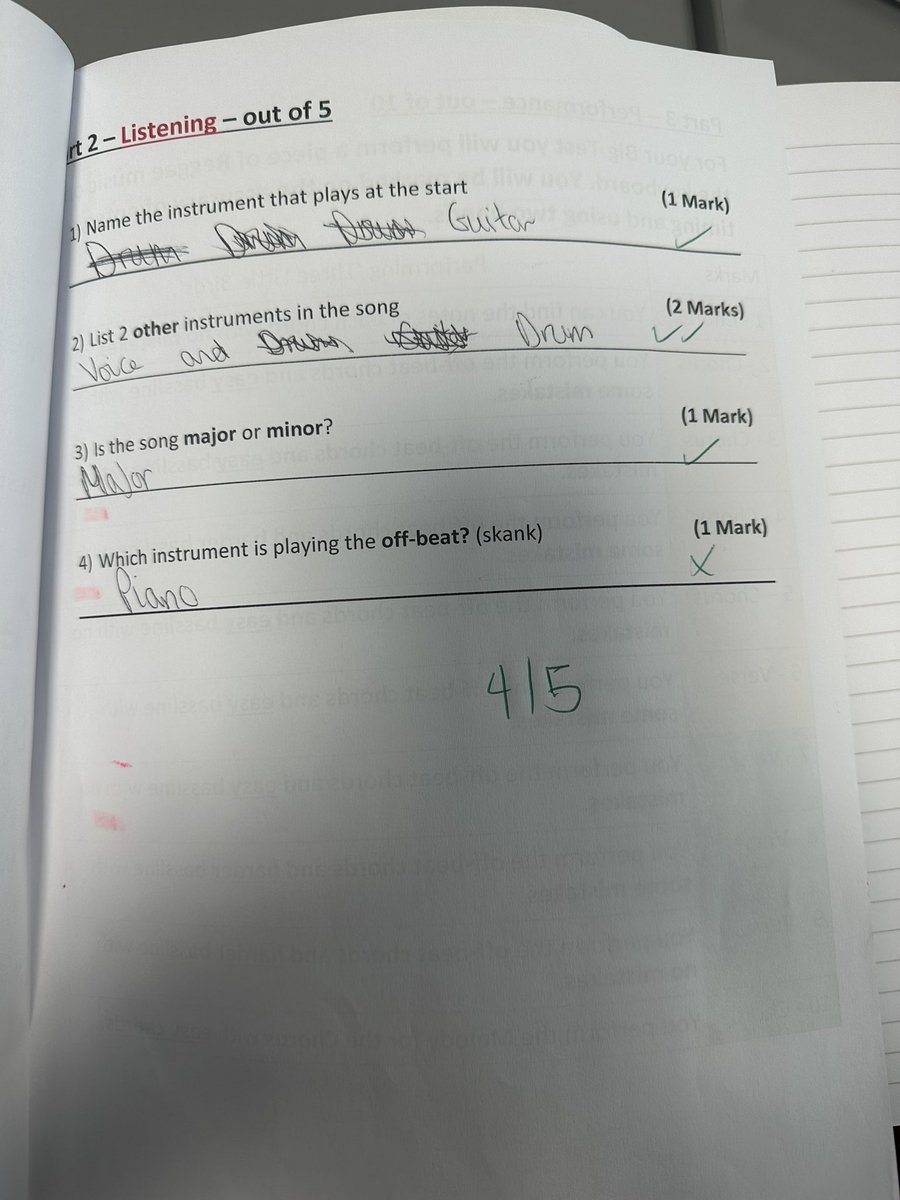 rt 2 – Listening – out of 5
1) Name the instrument that plays at the start (1 Mark)
Guitar
2) List 2 other instruments in the song (2 Marks)
Voice and Drum
3) Is the song major or minor? (1 Mark)
Major
4) Which instrument is playing the off-beat? (skank) (1 Mark)
Piano
4/5